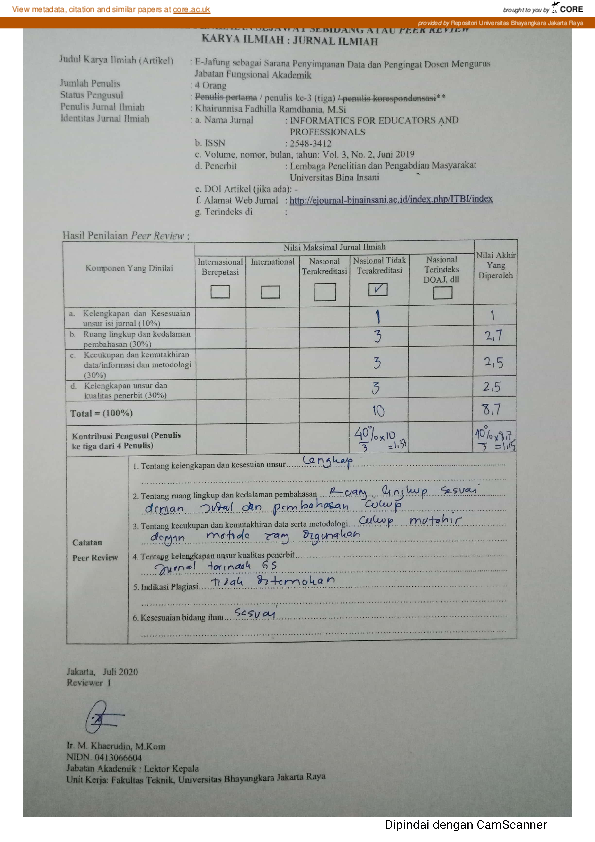 View metadata, citation and similar papers at core.ac.uk
brought to you by CORE
provided by Repositori Universitas Bhayangkara Jakarta Raya
SEJAWAT SEBIDANG ATAU PEER REVIEW
KARYA ILMIAH : JURNAL ILMIAH
Judul Karya Ilmiah (Artikel) : E-Jafung sebagai Sarana Penyimpanan Data dan Pengingat Dosen Mengurus
Jabatan Fungsional Akademik
Jumlah Penulis : 4 Orang
Status Pengusul : Penulis pertama / penulis ke-3 (tiga) / penulis korespondensi**
Penulis Jurnal Ilmiah : Khairunnisa Fadhilla Ramdhania, M.Si
Identitas Jurnal Ilmiah : a. Nama Jurnal : INFORMATICS FOR EDUCATORS AND
PROFESSIONALS
b. ISSN : 2548-3412
c. Volume, nomor, bulan, tahun: Vol. 3, No. 2, Juni 2019
d. Penerbit : Lembaga Penelitian dan Pengabdian Masyarakat
Universitas Bina Insani
e. DOI Artikel (jika ada): -
f. Alamat Web Jurnal : http://ejournal-binainsani.ac.id/index.php/ITBI/index
g. Terindeks di :
Hasil Penilaian Peer Review :
Komponen Yang Dinilai
Nilai Maksimal Jurnal Ilmiah
Nilai Akhir Yang Diperoleh
Internasional Bereputasi
International
Nasional Terakreditasi
Nasional Tidak Terakreditasi ✓
Nasional Terindeks DOAJ, dll
a. Kelengkapan dan Kesesuaian unsur isi jurnal (10%) 1 1
b. Ruang lingkup dan kedalaman pembahasan (30%) 3 2,7
c. Kecukupan dan kemutakhiran data/informasi dan metodologi (30%) 3 2,5
d. Kelengkapan unsur dan kualitas penerbit (30%) 3 2,5
Total = (100%) 10 8,7
Kontribusi Pengusul (Penulis ke tiga dari 4 Penulis)
Catatan
Peer Review
1. Tentang kelengkapan dan kesesuaian unsur Lengkap
2. Tentang ruang lingkup dan kedalaman pembahasan Ruang lingkup sesuai
dengan judul dan pembahasan cukup
3. Tentang kecukupan dan kemutakhiran data serta metodologi cukup mutahir
dengan metode yang digunakan
4. Tentang kelengkapan unsur kualitas penerbit
Jurnal terindek GS
5. Indikasi Plagiasi Tidak ditemukan
6. Kesesuaian bidang ilmu sesuai
Jakarta, Juli 2020
Reviewer 1
Ir. M. Khaerudin, M.Kom
NIDN. 0413066604
Jabatan Akademik : Lektor Kepala
Unit Kerja: Fakultas Teknik, Universitas Bhayangkara Jakarta Raya
Dipindai dengan CamScanner